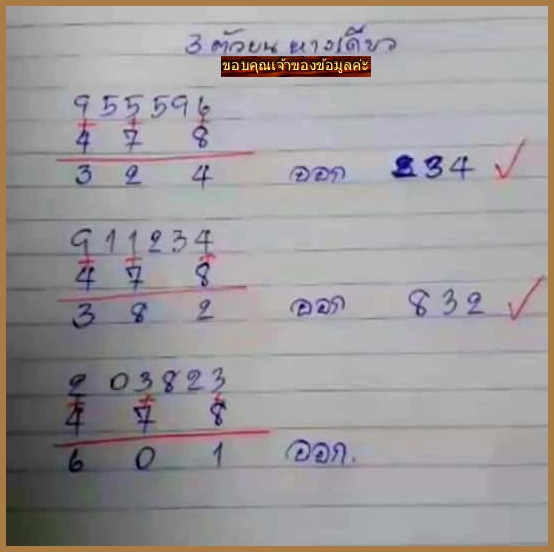 3 ตัวบน ทางเดียว
ขอบคุณเจ้าของข้อมูลค่ะ
955596
+ + +
4 7 8
3 2 4 ออก 234 ✓
911234
+ + +
4 7 8
3 8 2 ออก 832 ✓
203823
+ + +
4 7 8
6 0 1 ออก.